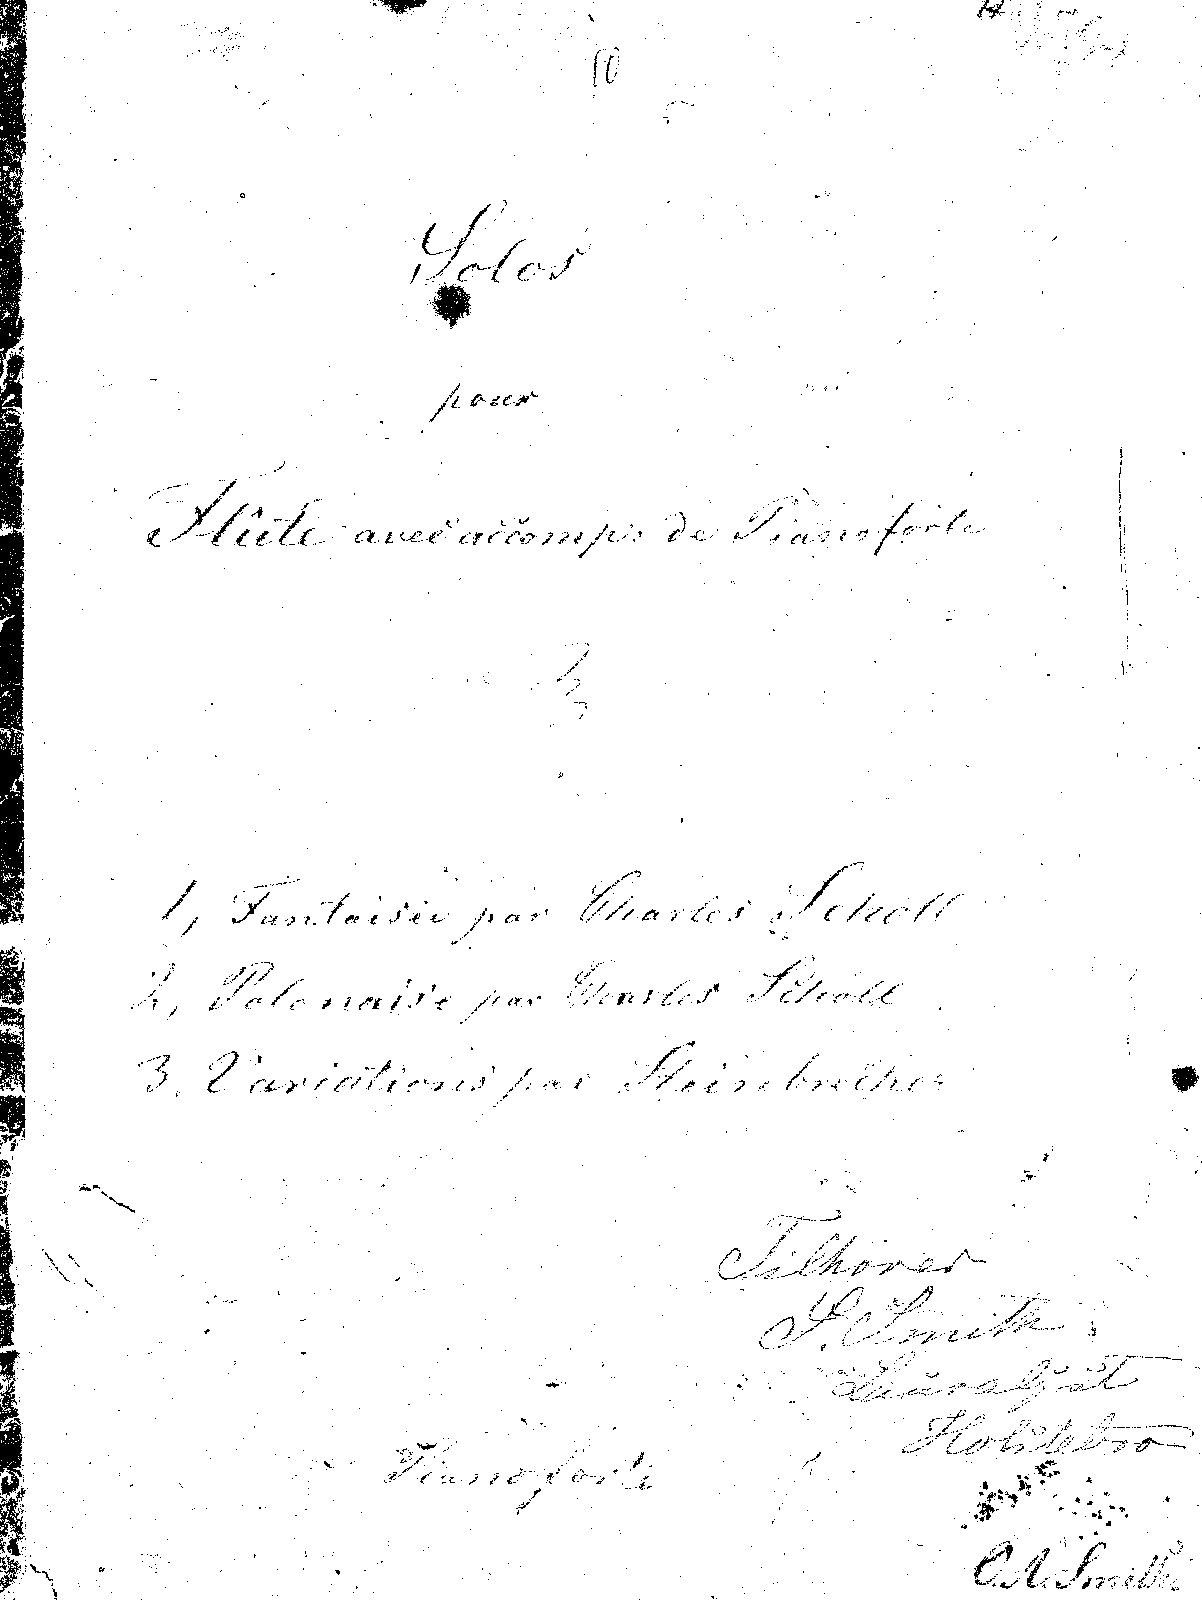 10
Solos
pour
Flûte avec accomp: de Pianoforte
1, Fantaisie par Charles Scholl
2, Polonaise par Charles Scholl
3. Variations par Steinbrecher
Tilhører
S. Smith
Holstebro
Pianoforte
Smith